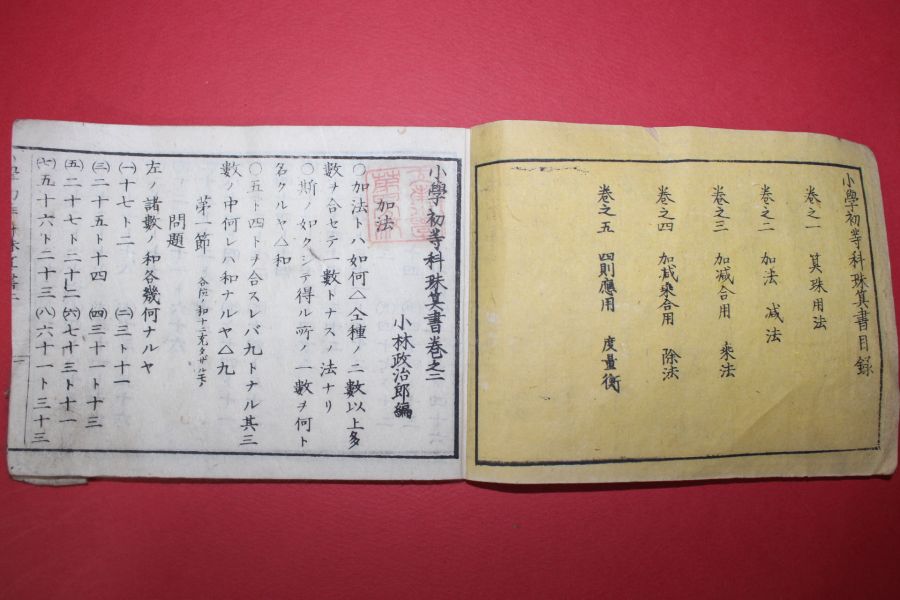 小學初等科珠算書目錄
卷之一 算珠用法
卷之二 加法 減法
卷之三 加減合用 乘法
卷之四 加減乘合用 除法
卷之五 四則應用 度量衡
小學初等科珠算書卷之二
小林政治郎編
加法
○加法トハ如何△仝種ノ二數以上多
數ヲ合セテ一數トナスノ法ナリ
○斯ノ如クシテ得ル所ノ一數ヲ何ト
名クルヤ△和
○五ト四トヲ合スレバ九トナル其三
數ノ中何レハ和ナルヤ△九
第一節
問題
左ノ諸數ノ和各幾何ナルヤ
(一)十七ト二 (二)三ト十一
(三)二十五ト十四 (四)三十一ト十三
(五)二十七ト二十二 (六)七十三ト十一
(七)五十六ト二十三 (八)六十一ト三十三